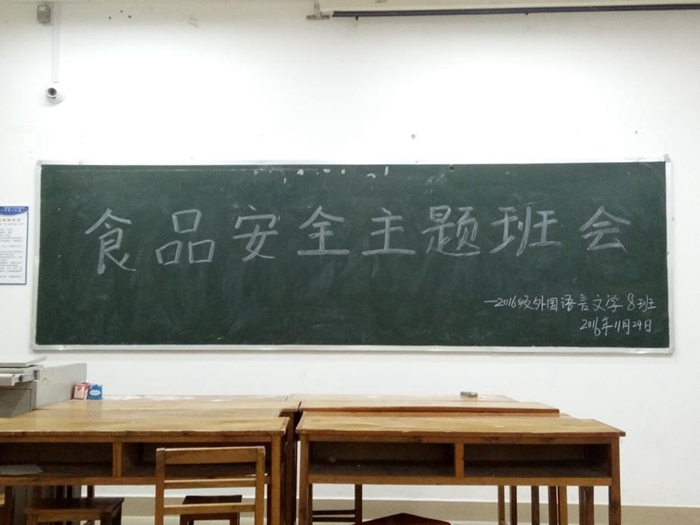 食品安全主题班会
—2016级外国语言文学8班
2016年11月29日